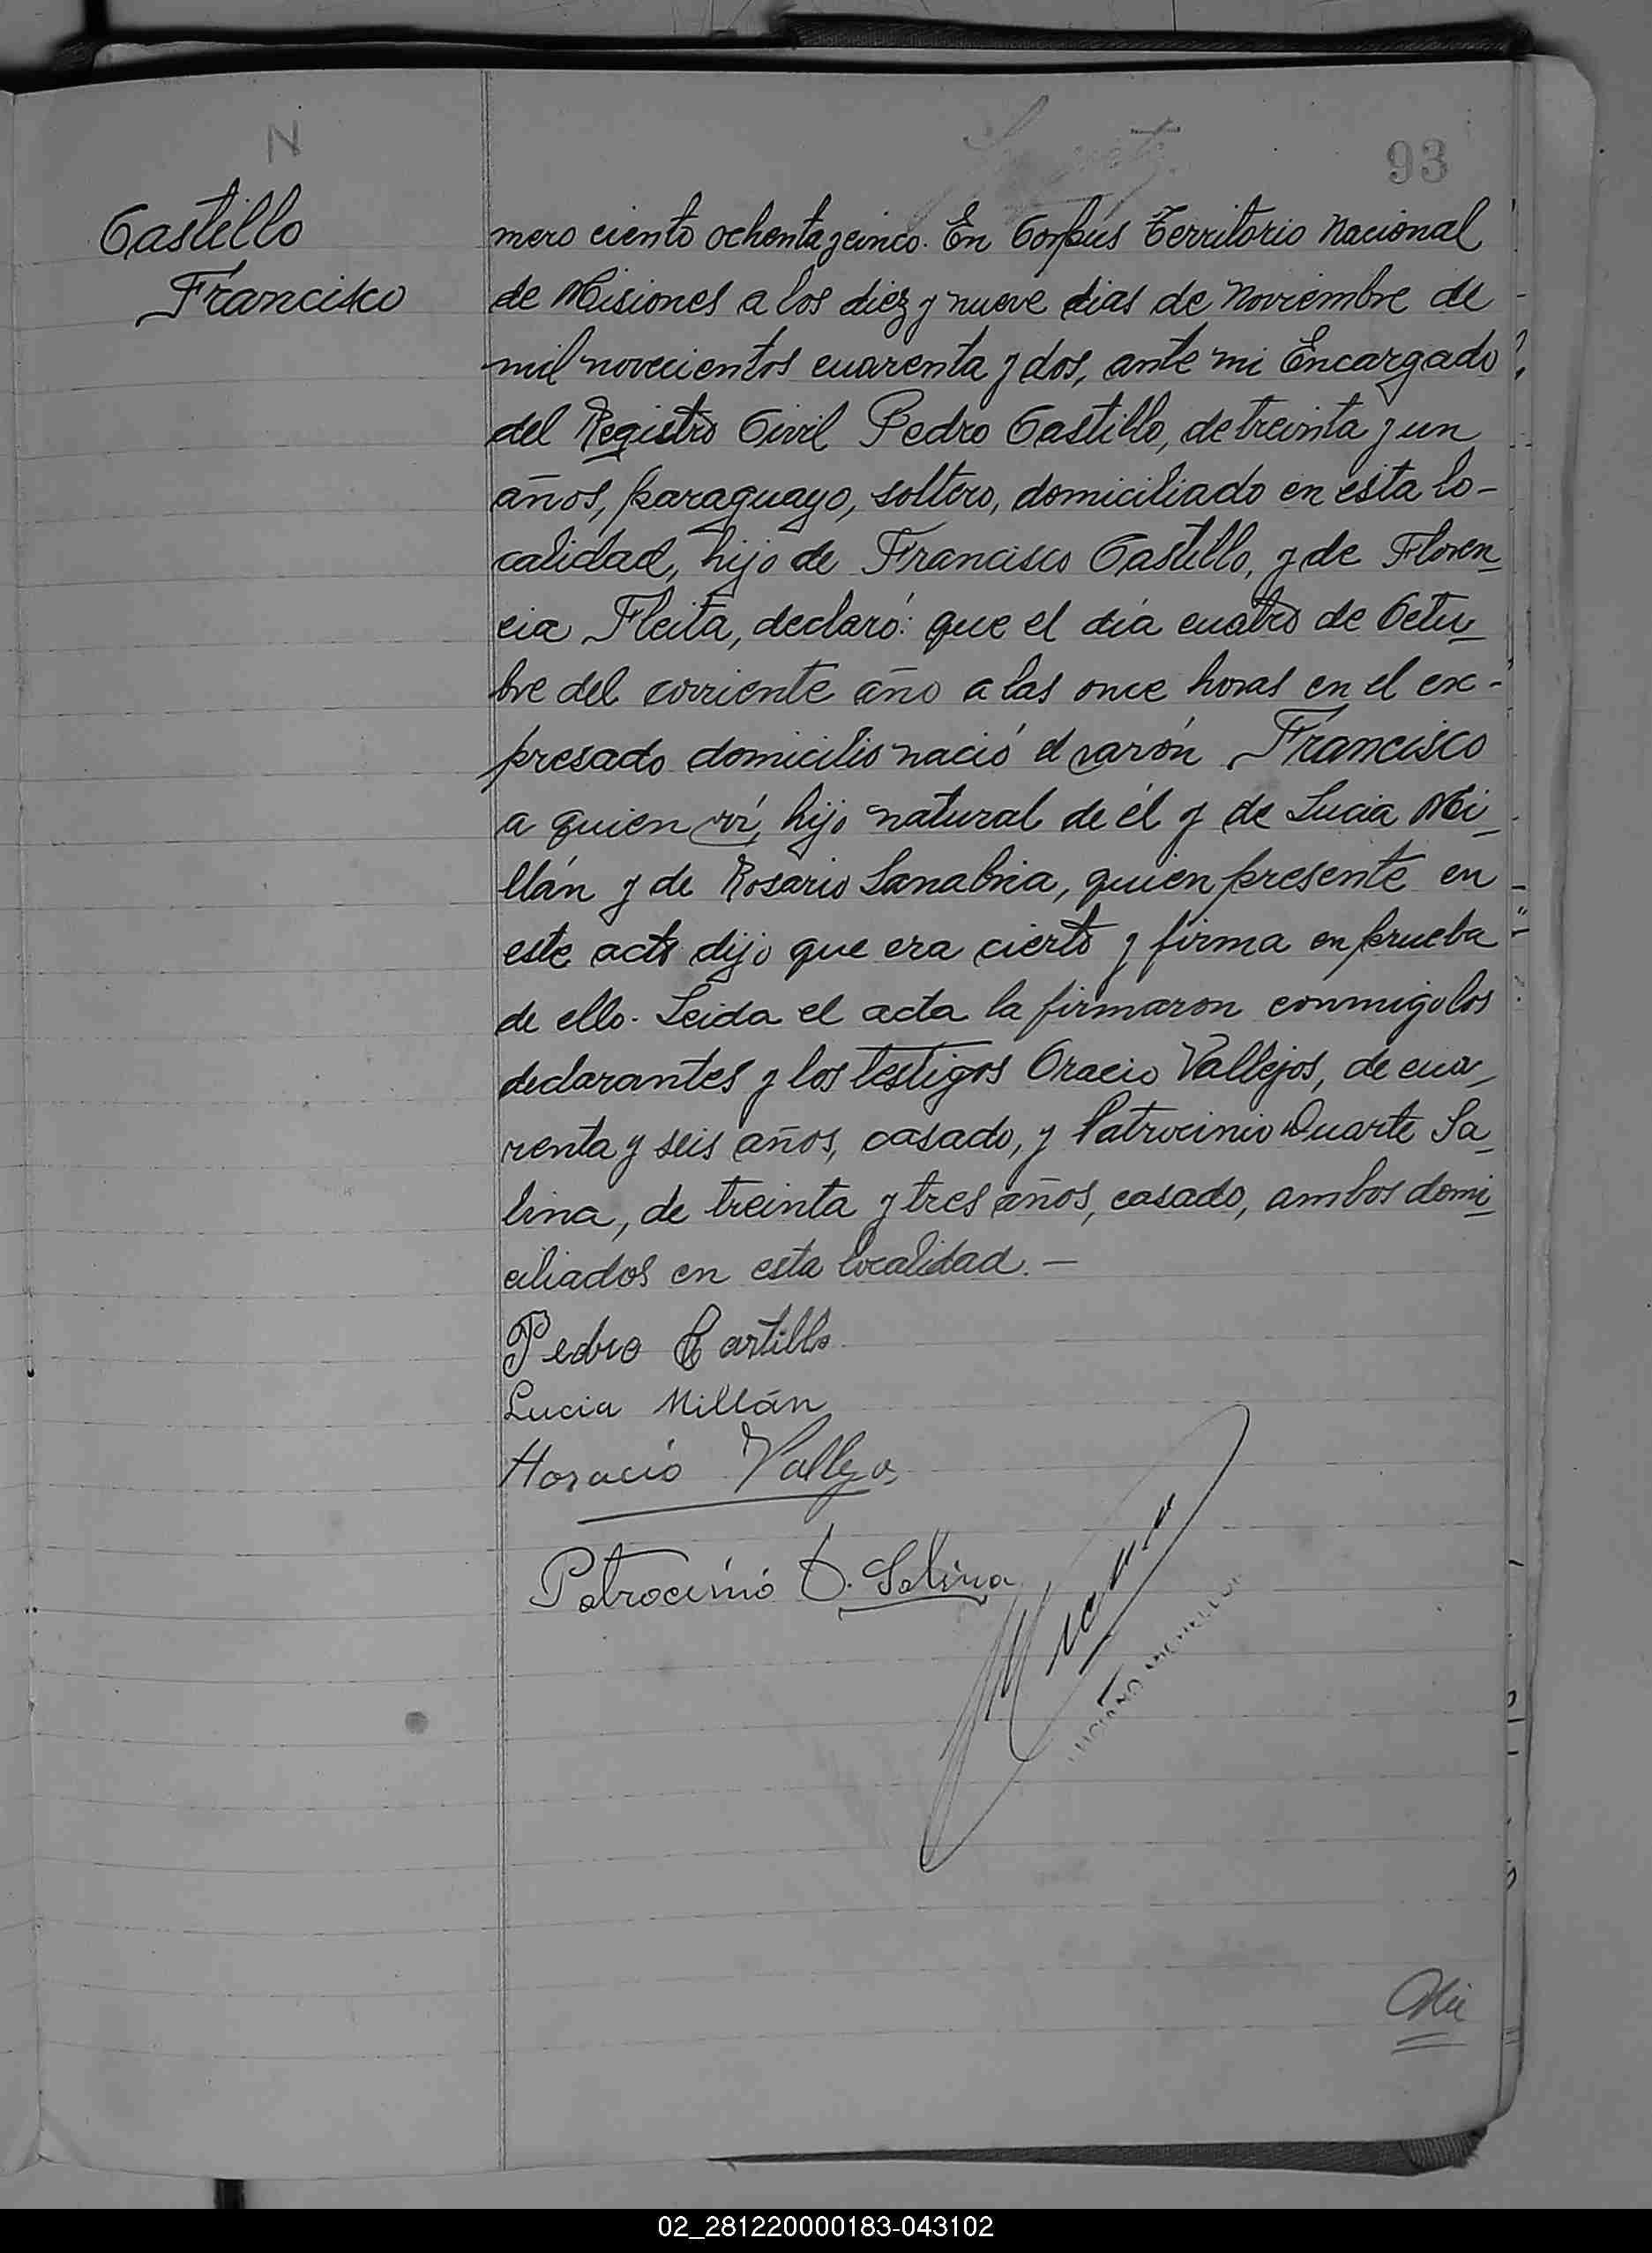 N
93
Castillo
Francisco
mero ciento ochenta y cinco. En Corpus Territorio Nacional
de Misiones a los diez y nueve dias de Noviembre de
mil novecientos cuarenta y dos, ante mi Encargado
del Registro Civil Pedro Castillo, de treinta y un
años, paraguayo, soltero, domiciliado en esta lo-
calidad, hijo de Francisco Castillo, y de Floren-
cia Fleita, declaró: que el día cuatro de Octu-
bre del corriente año a las once horas en el ex-
presado domicilio nació el varón Francisco
a quien ví, hijo natural de él y de Lucia Mi-
llán y de Rosario Sanabria, quien presente en
este acto dijo que era cierto y firma en prueba
de ello. Leida el acta la firmaron conmigo los
declarantes y los testigos Oracio Vallejos, de cua-
renta y seis años, casado, y Patrocinio Duarte Sa-
lina, de treinta y tres años, casado, ambos domi-
ciliados en esta localidad.—
Pedro Castillo
Lucia Millán
Horacio Vallejos
Patrocinio D. Salina
02_281220000183-043102